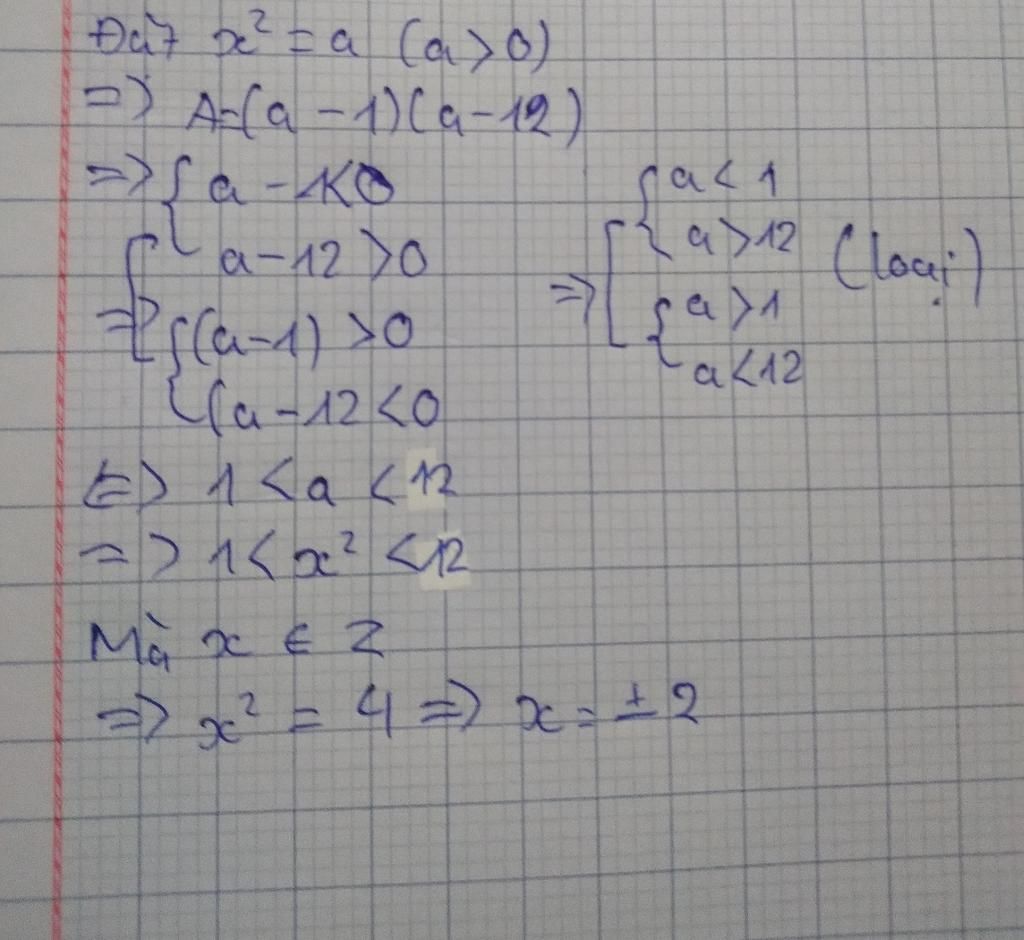 Đặt x² = a (a > 0)
=> A = (a - 1)(a - 12)
=> { a - 1 < 0
a - 12 > 0
=> { (a - 1) > 0
(a - 12 < 0
=> [ { a < 1
a > 12 (loại)
{ a > 1
a < 12
<=> 1 < a < 12
=> 1 < x² < 12
Mà x ∈ Z
=> x² = 4 => x = ± 2